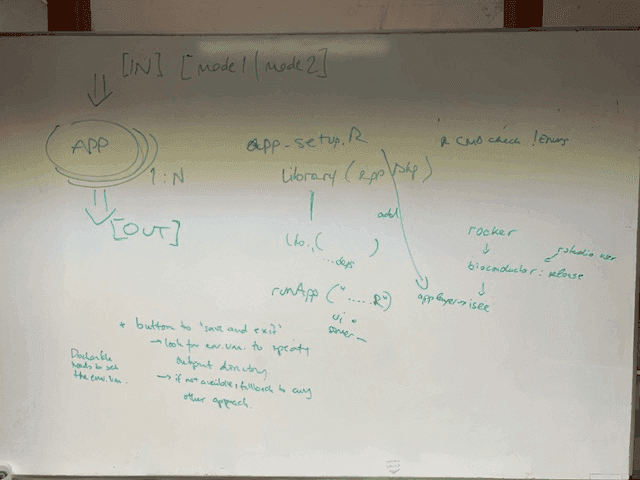 [IN] [mode1 | mode2]
APP
1:N
[OUT]
app-setup.R
library(app pkg)
add
... deps
runApp(".....R")
ui
server
R CMD check !Errors
rocker
↓
bioconductor: release
rstudio user
↓
* button to 'save and exit'
→ look for env.var. to specify
output directory
→ if not available, fallback to any
other approach.
Dockerfile
needs to set
the env.var.